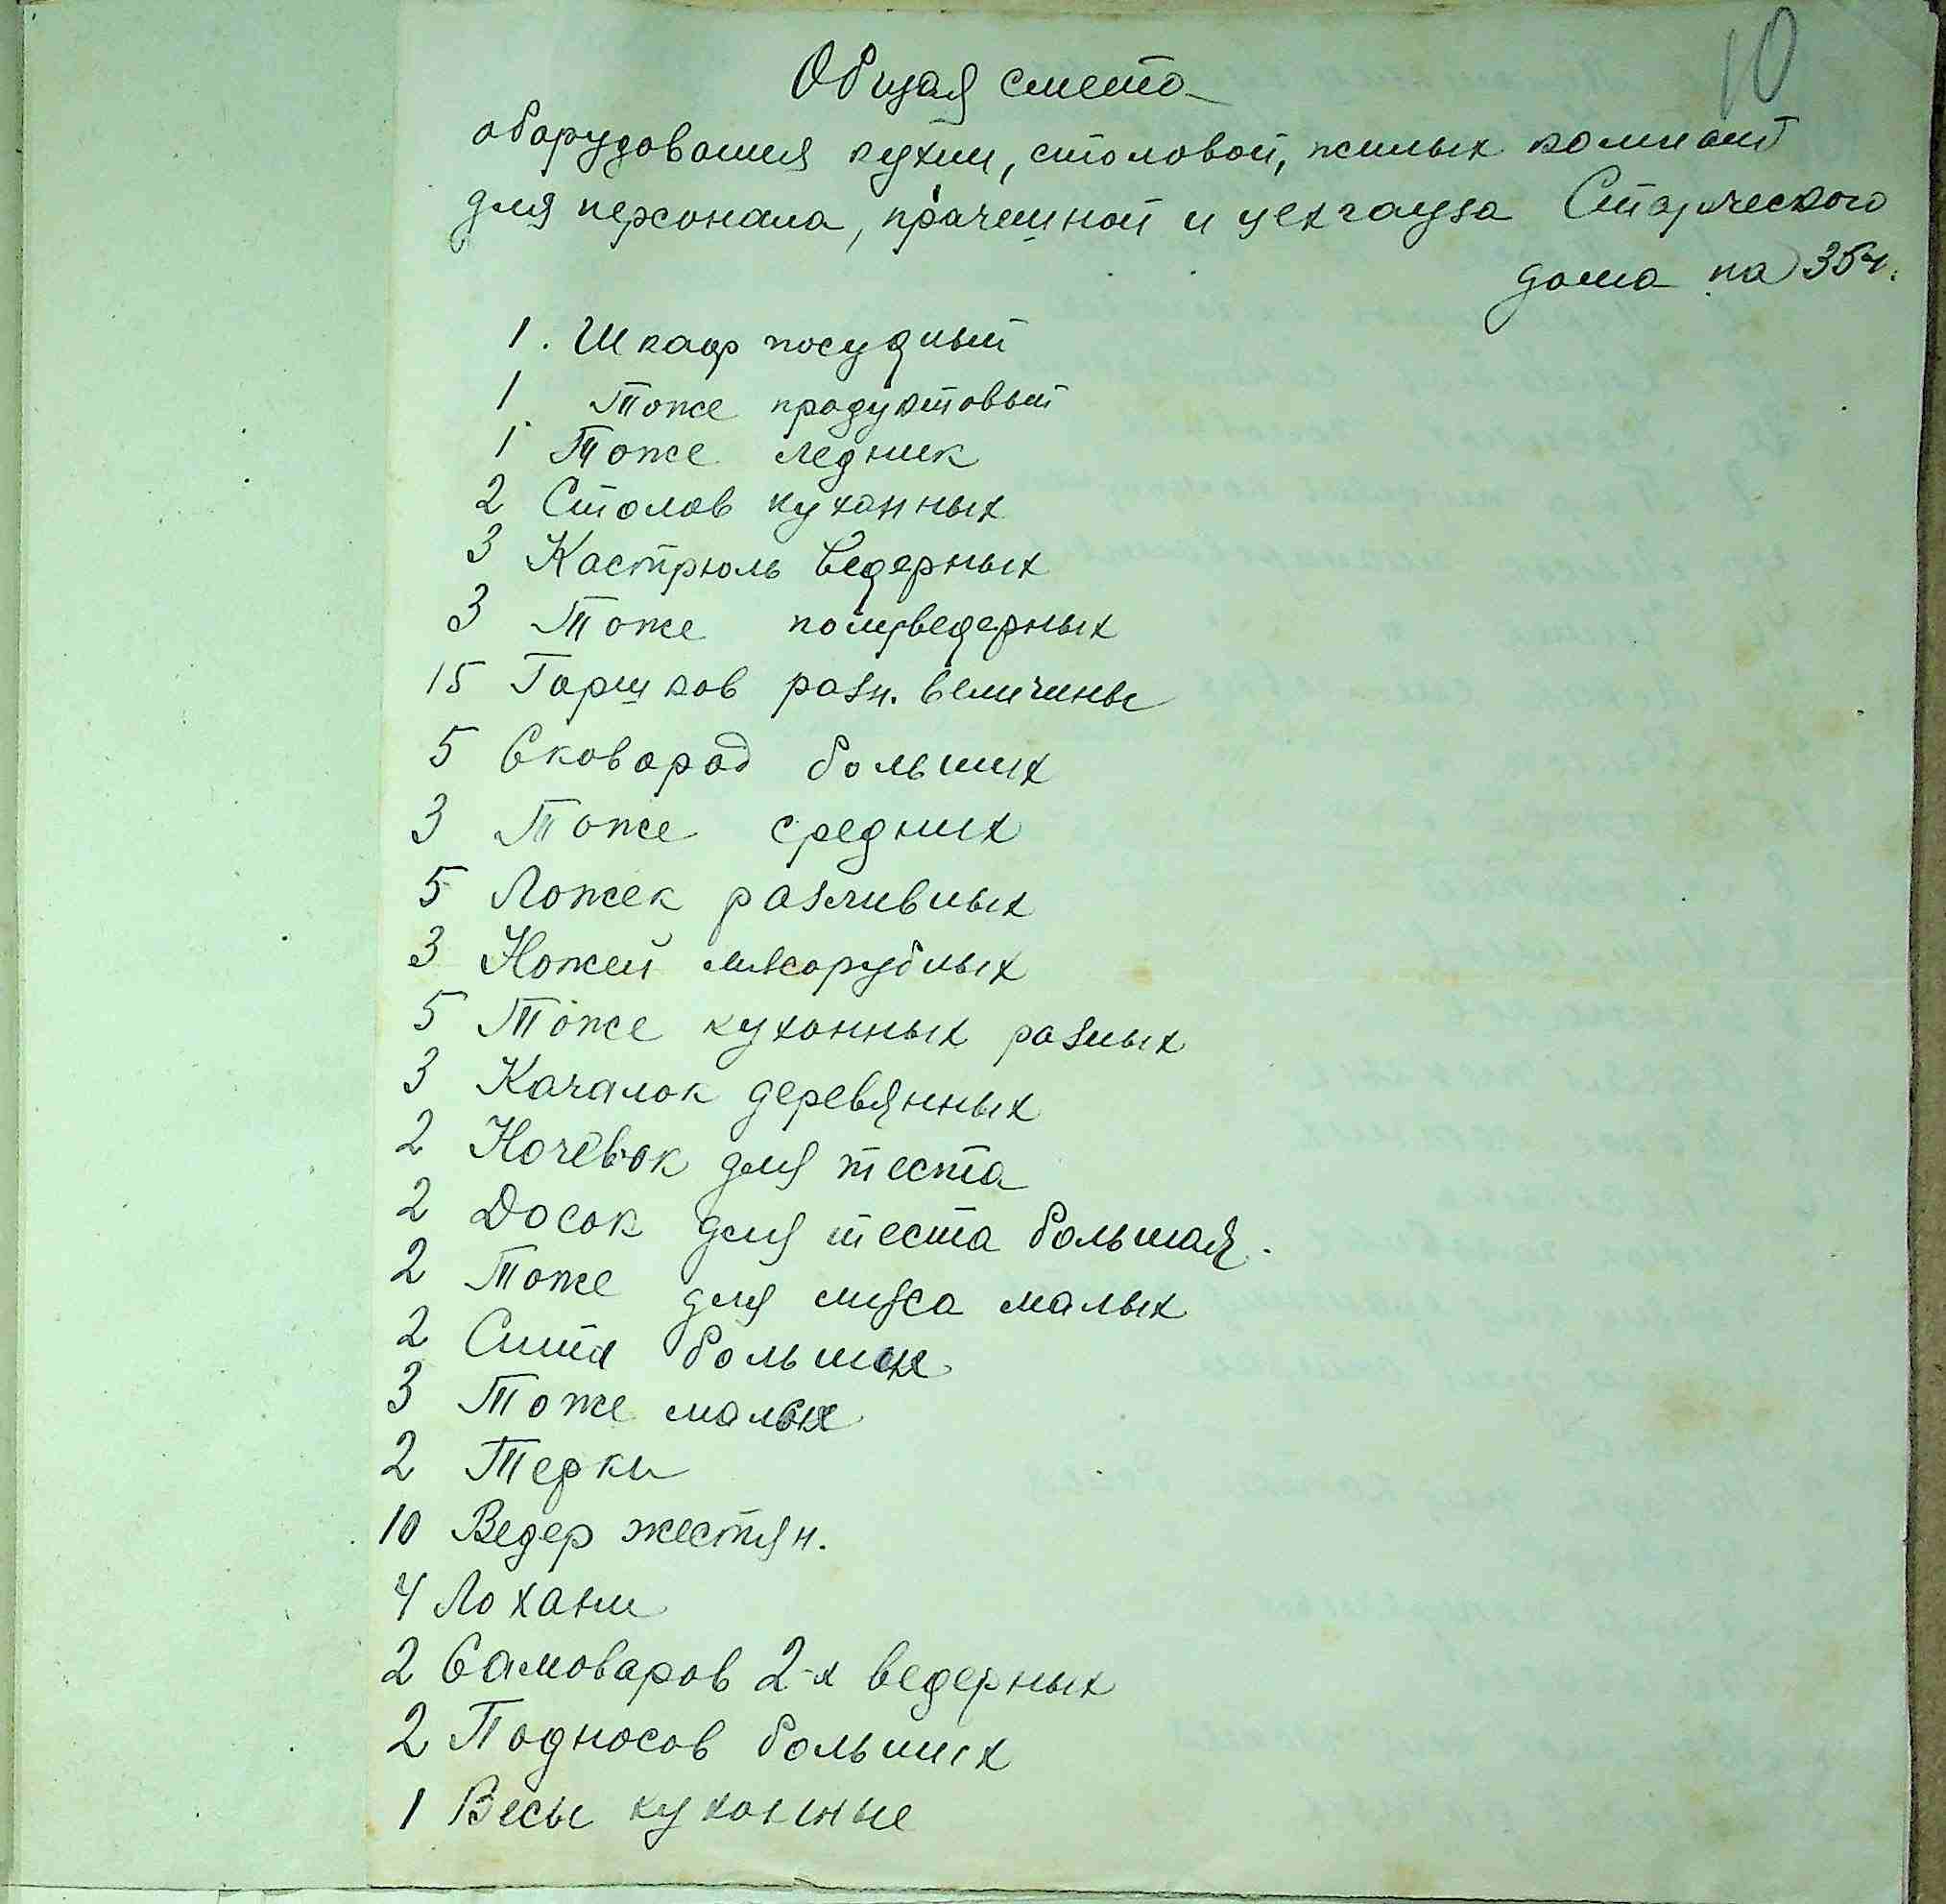 10
Общая смета
оборудования кухни, столовой, жилых комнат
для персонала, прачешной и цехгауза Старческого
дома на 35 ч.
1. Шкаф посудный
1 Тоже продуктовый
1 Тоже ледник
2 Столов кухонных
3 Кастрюль ведерных
3 Тоже полуведерных
15 Горшков разн. величины
5 Сковород больших
3 Тоже средних
5 Ложек разливных
3 Ножей мясорубных
5 Тоже кухонных разных
3 Качалок деревянных
2 Ночевок для теста
2 Досок для теста большая.
2 Тоже для мяса малых
2 Сита больших
3 Тоже малых
2 Терки
10 Ведер жестян.
4 Лохани
2 Самоваров 2-х ведерных
2 Подносов больших
1 Весы кухонные